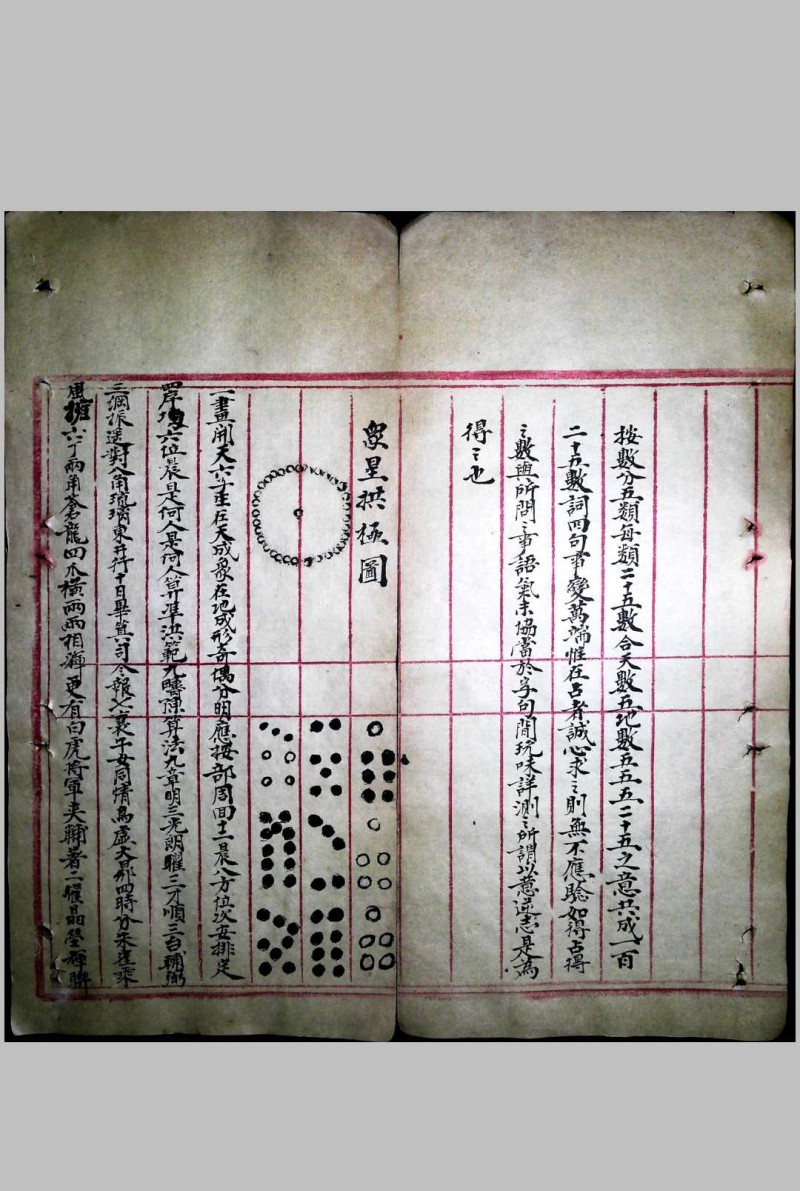 按數分五類每類二十五數合天數五地數五五五二十五之意共成一百
二十五數詞四句事變萬端惟在占者誠心求之則無不應驗如得占得
之數與所問之事語氣未協當於字句間玩味詳測之所謂以意逆志是為
得之也
眾星拱極圖
一畫開天六字重在天成象在地成形奇偶分明應接部周回十二晨八方位次安排定
六位晨是何人是何人算准洪範九疇陳算法九章明三光朗曜三才順三台輔弼
三綱振遥對八角琉璃東井行十日畢真司令報七襄子女同情鳥虛大昴四時分朱雀乘
風擁六丁兩角蒼龍四爪橫兩兩相輝更有白虎將軍夾輔著二曜晶瑩輝聯